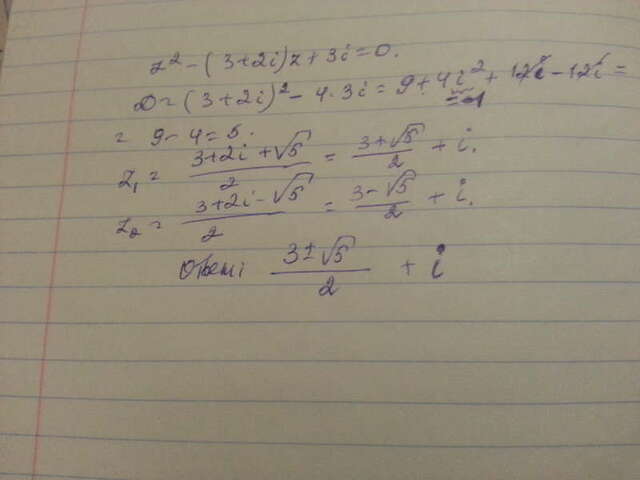 z² - (3+2i)z + 3i = 0.
D = (3+2i)² - 4·3i = 9 + 4i² + 12i - 12i =
= -1
= 9 - 4 = 5.
z₁ = (3+2i+√5)/2 = (3+√5)/2 + i.
z₂ = (3+2i-√5)/2 = (3-√5)/2 + i.
Ответ: (3±√5)/2 + i